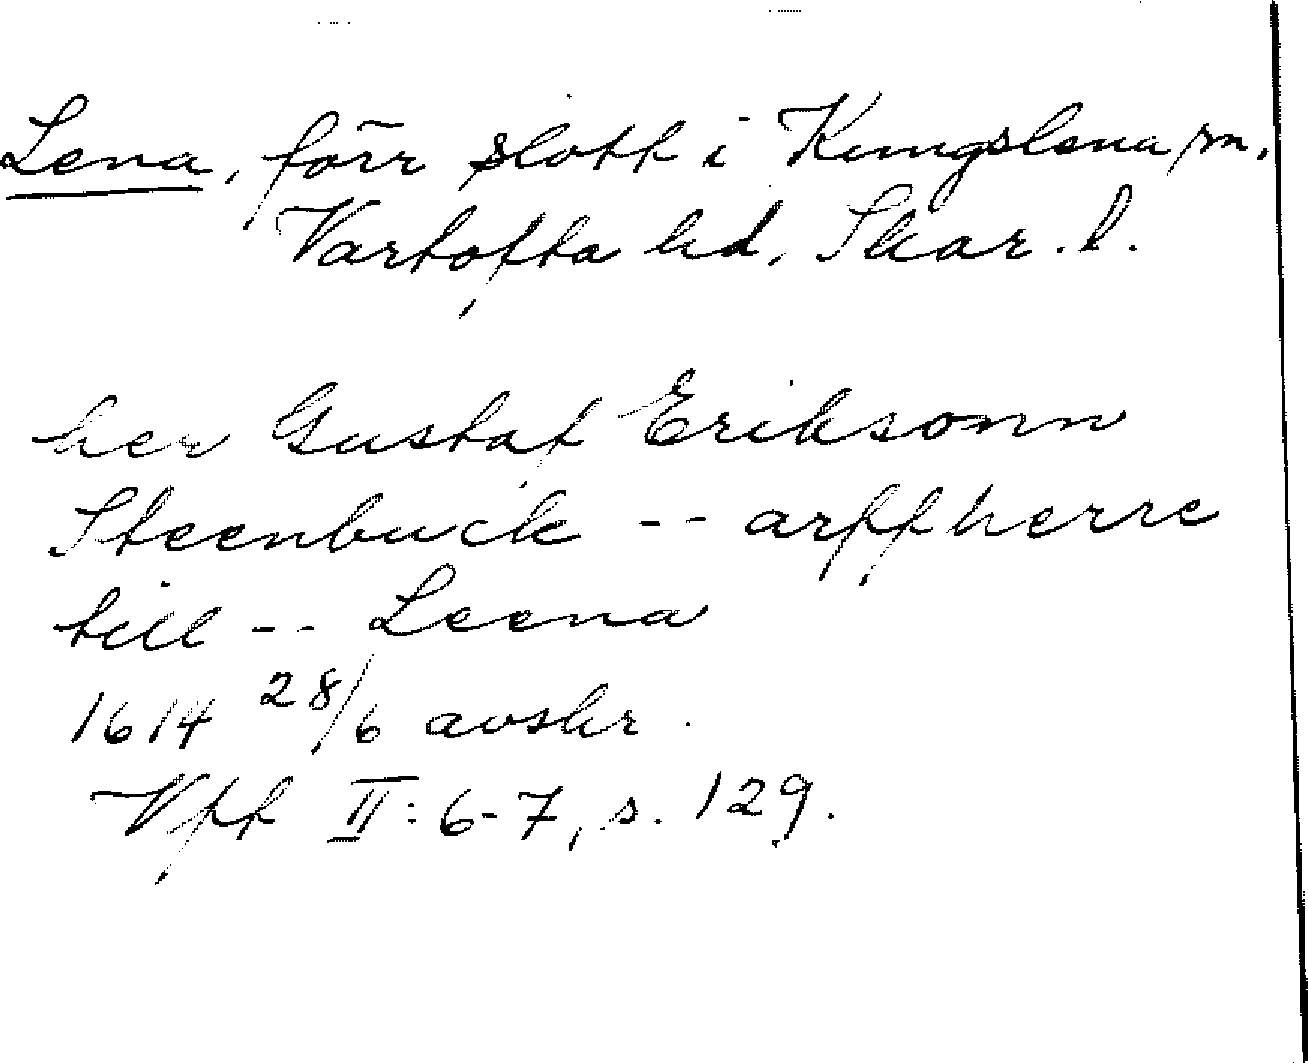 Lena, förr slott i Kungslena sn,
Vartofta hd, Skar. l.
her Gustaf Eriksonn
Steenbuck -- arffherre
till -- Leena
1614 28/6 avskr.
Vff II: 6-7, s. 129.